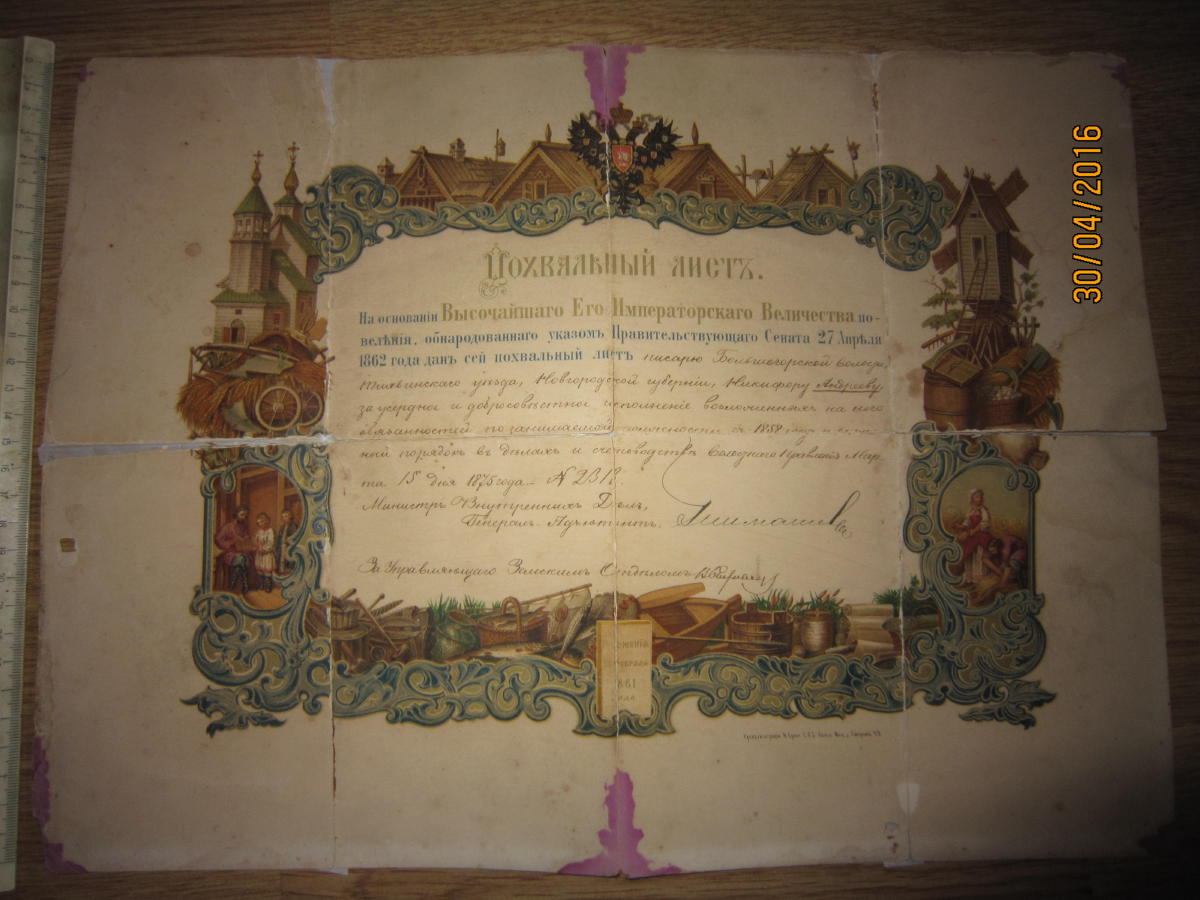 Похвальный листъ.
На основаніи Высочайшаго Его Императорскаго Величества по-
велѣнія, обнародованнаго указомъ Правительствующаго Сената 27 Апрѣля
1862 года данъ сей похвальный листъ писарю Большегорской волости,
Тихвинскаго уѣзда, Новгородской губерніи, Никифору Андрееву,
за усердное и добросовѣстное исполненіе возложенныхъ на него
обязанностей по занимаемой должности съ 1858 года и
ный порядокъ въ дѣлахъ и счетоводствѣ волостнаго Правленія Мар-
та 15 дня 1875 года. №
Министръ Внутреннихъ Дѣлъ,
Генералъ-Адъютантъ, Тимашевъ
За Управляющаго Земскимъ Отдѣломъ
1861
года
30/04/2016